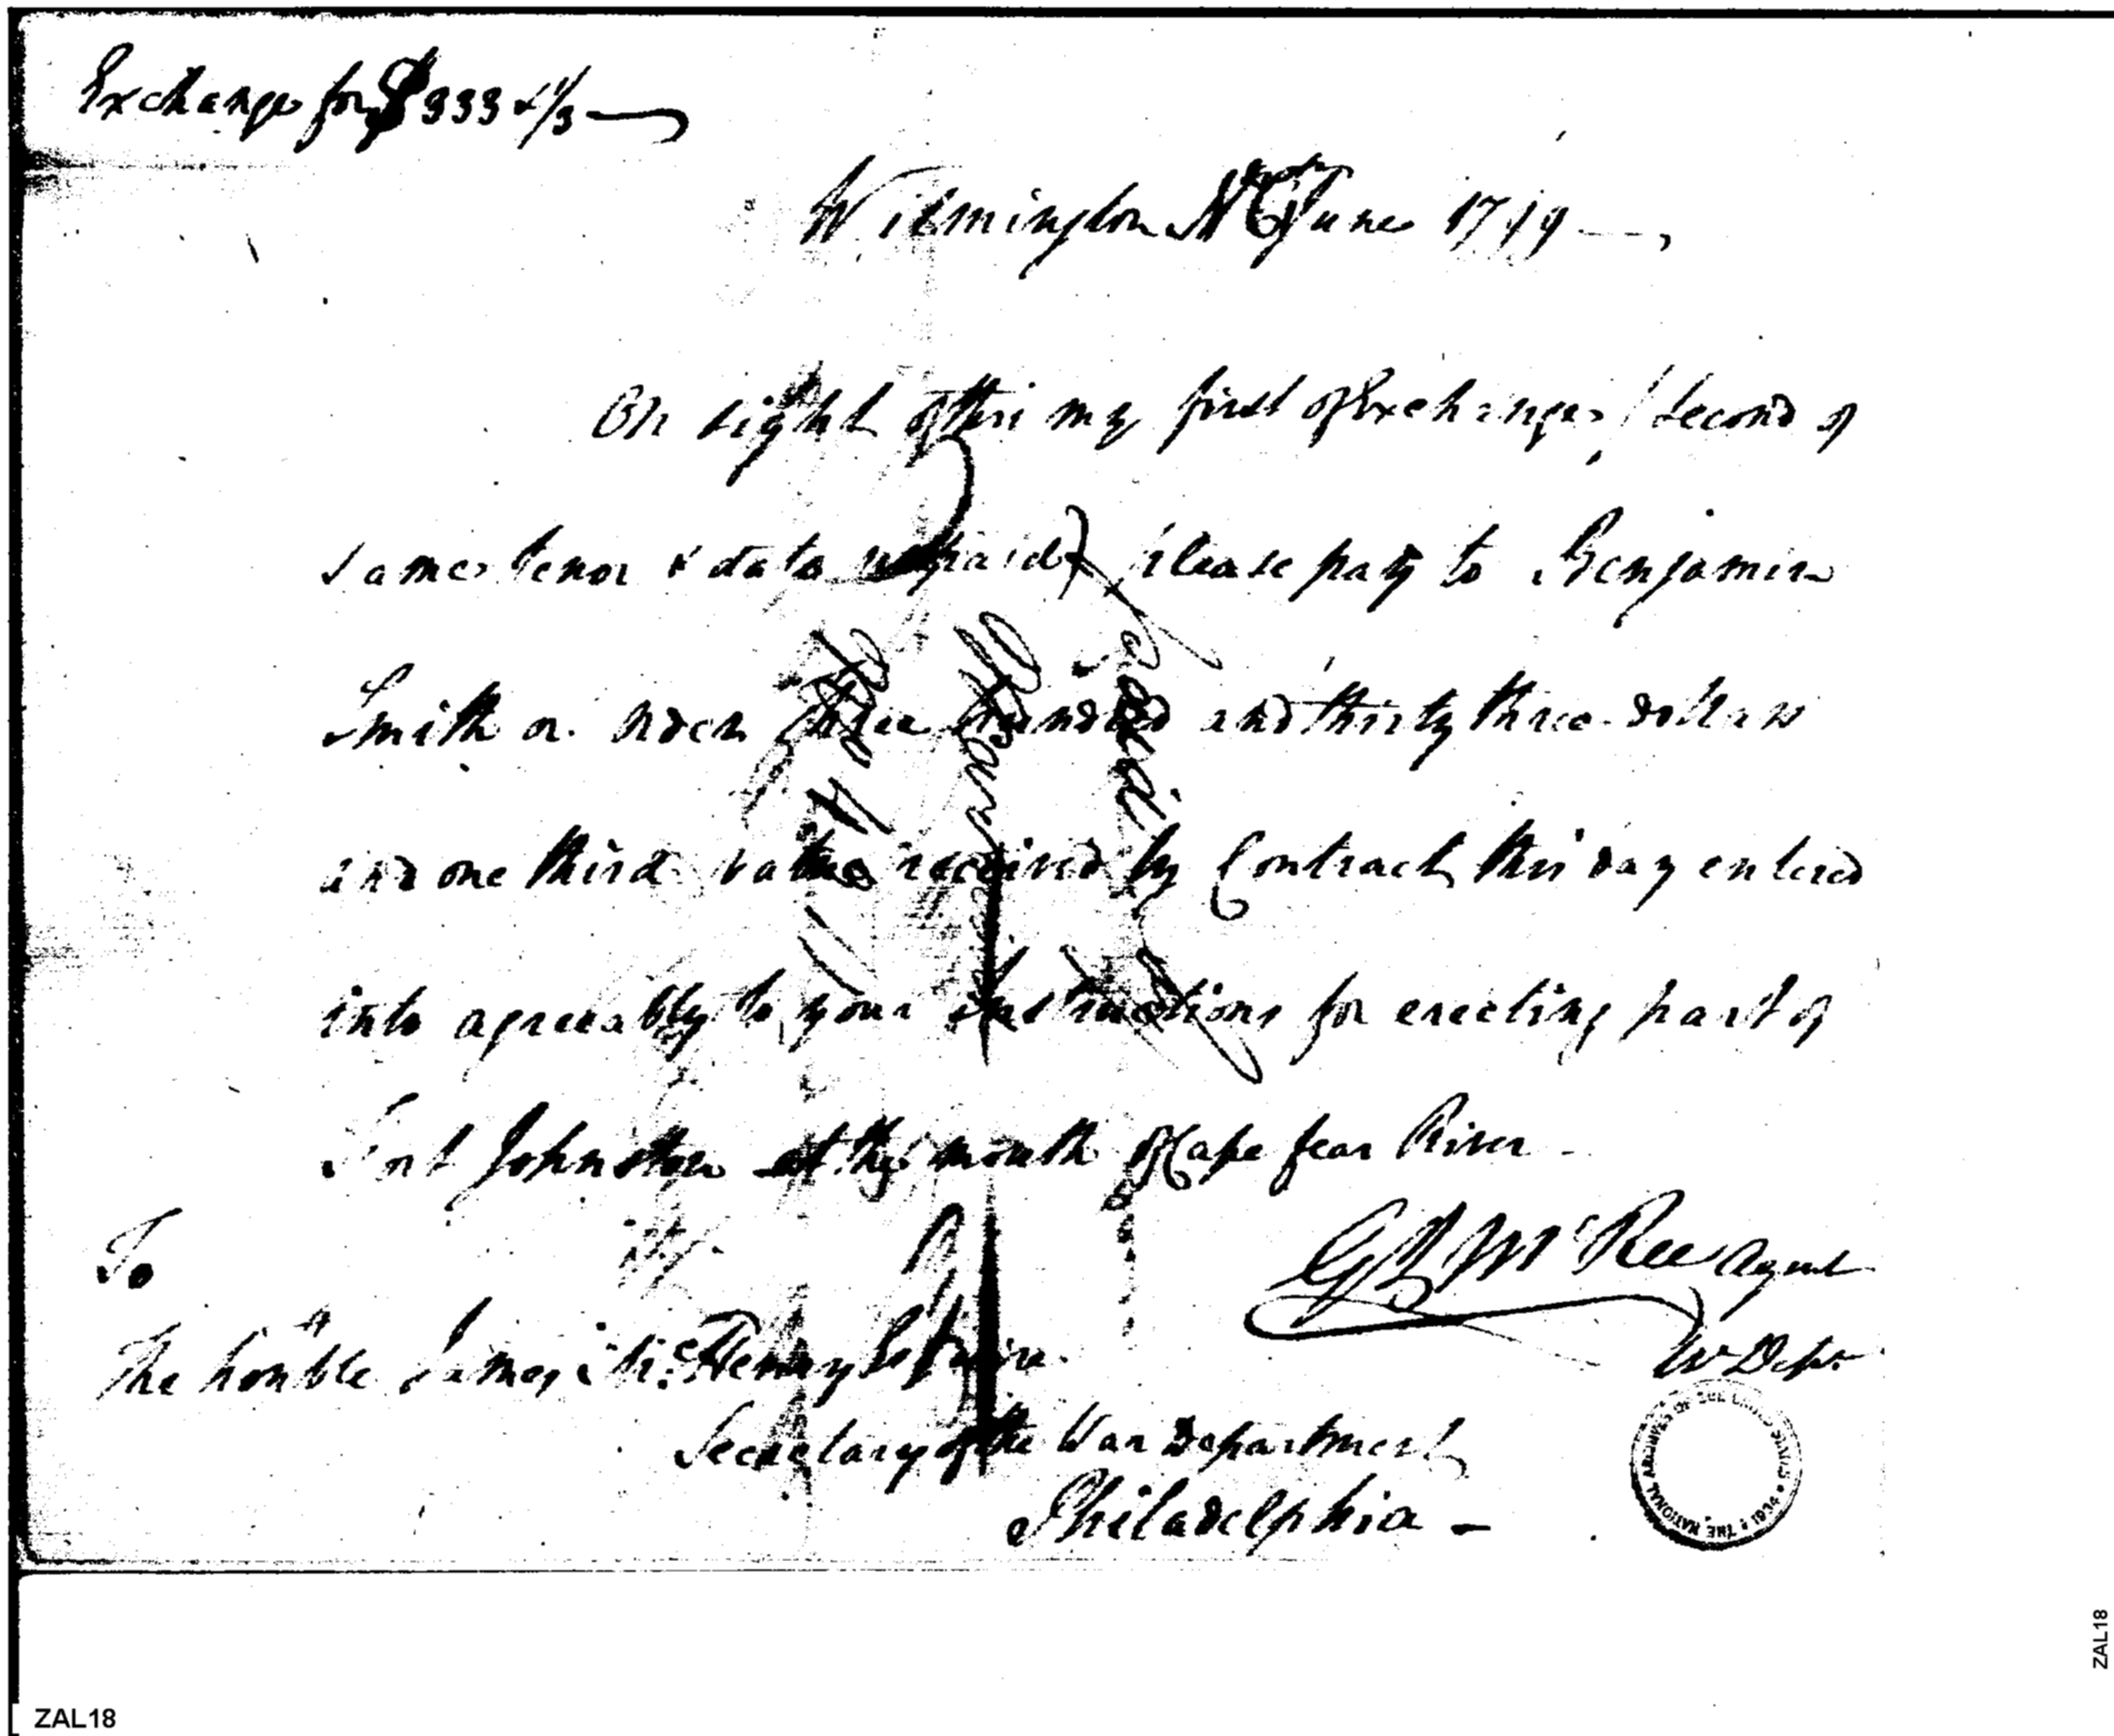 Exchange for $333 1/3
Wilmington June 1799
On sight of this my first of Exchange, (second of
same tenor & date unpaid) please pay to Benjamin
Smith or order three hundred and thirty three dollars
and one third value received by Contract this day entered
into agreeably to your instructions for erecting part of
Fort Johnston at the mouth of Cape fear River
To
G J McRee Agent
W Dept.
The honble James McHenry Esquire
Secretary of the War Department
Philadelphia
THE NATIONAL ARCHIVES OF THE UNITED STATES • 1934
ZAL18
ZAL18